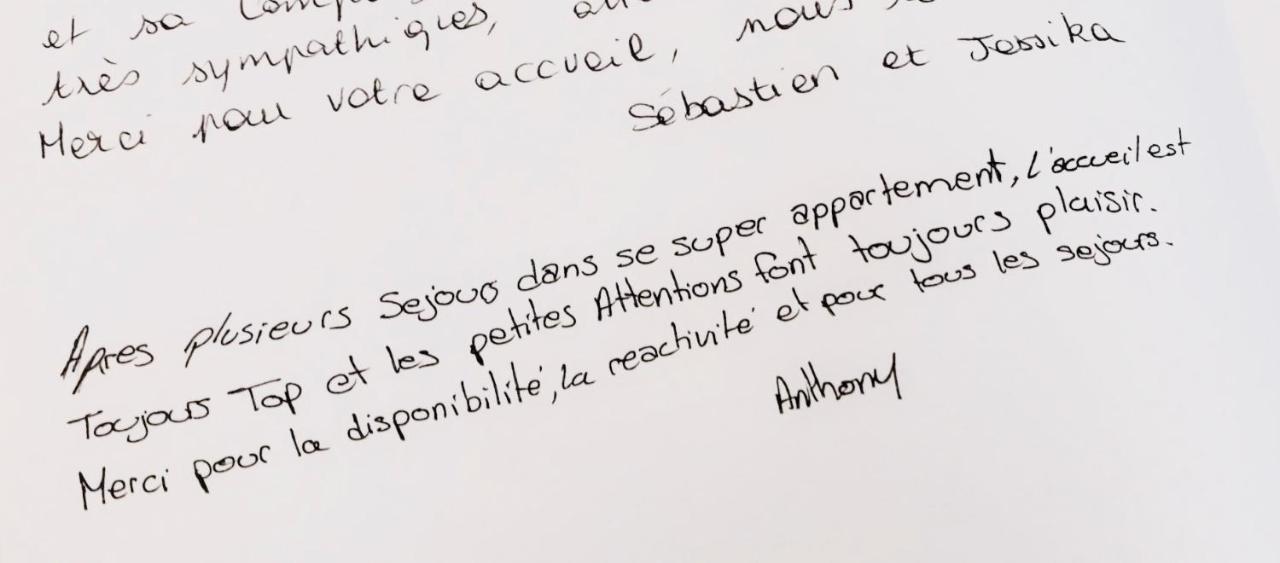 et sa
très sympathiques,
Merci pour votre accueil, nous
Sébastien et Jessika
Apres plusieurs Sejours dans se super appartement, l'accueil est
Toujours Top et les petites Attentions font toujours plaisir.
Merci pour la disponibilité, la reactivité et pour tous les sejours.
Anthony